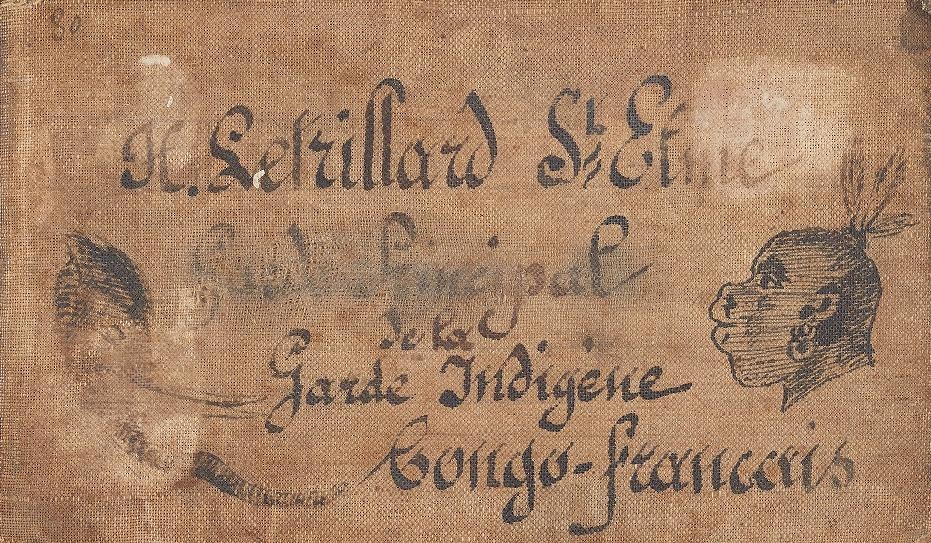 80
H. Letrillard St. Etne
Garde Principal
de la
Garde Indigène
Congo-français